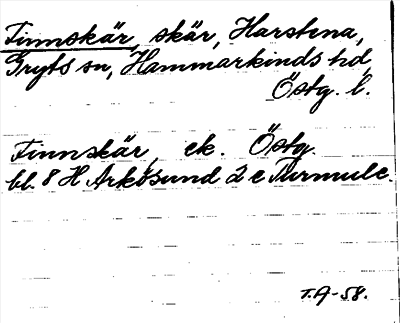 Finnskär, skär, Harstena,
Gryts sn, Hammarkinds hd
Östg. l.
Finnskär, ek. Östg.
bl. 8 H Arkösund 2 e
T.A-58.